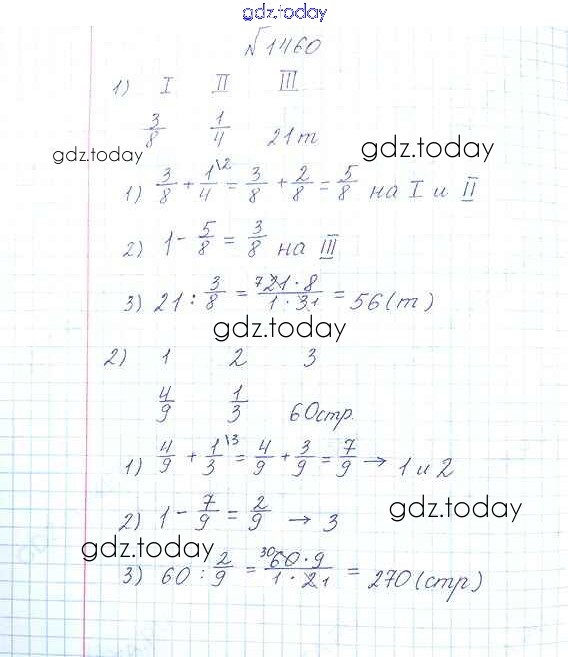 gdz.today
№1460
1) I II III
3/8 1/4 21т
gdz.today gdz.today
1) 3/8 + 1\2/4 = 3/8 + 2/8 = 5/8 на I и II
2) 1 - 5/8 = 3/8 на III
3) 21 : 3/8 = 7 21 · 8 / 1 · 3 1 = 56 (т)
gdz.today
2) 1 2 3
4/9 1/3 60стр.
1) 4/9 + 1\3/3 = 4/9 + 3/9 = 7/9 → 1 и 2
2) 1 - 7/9 = 2/9 → 3
gdz.today
gdz.today
3) 60 : 2/9 = 30 60 · 9 / 1 · 2 1 = 270 (стр)